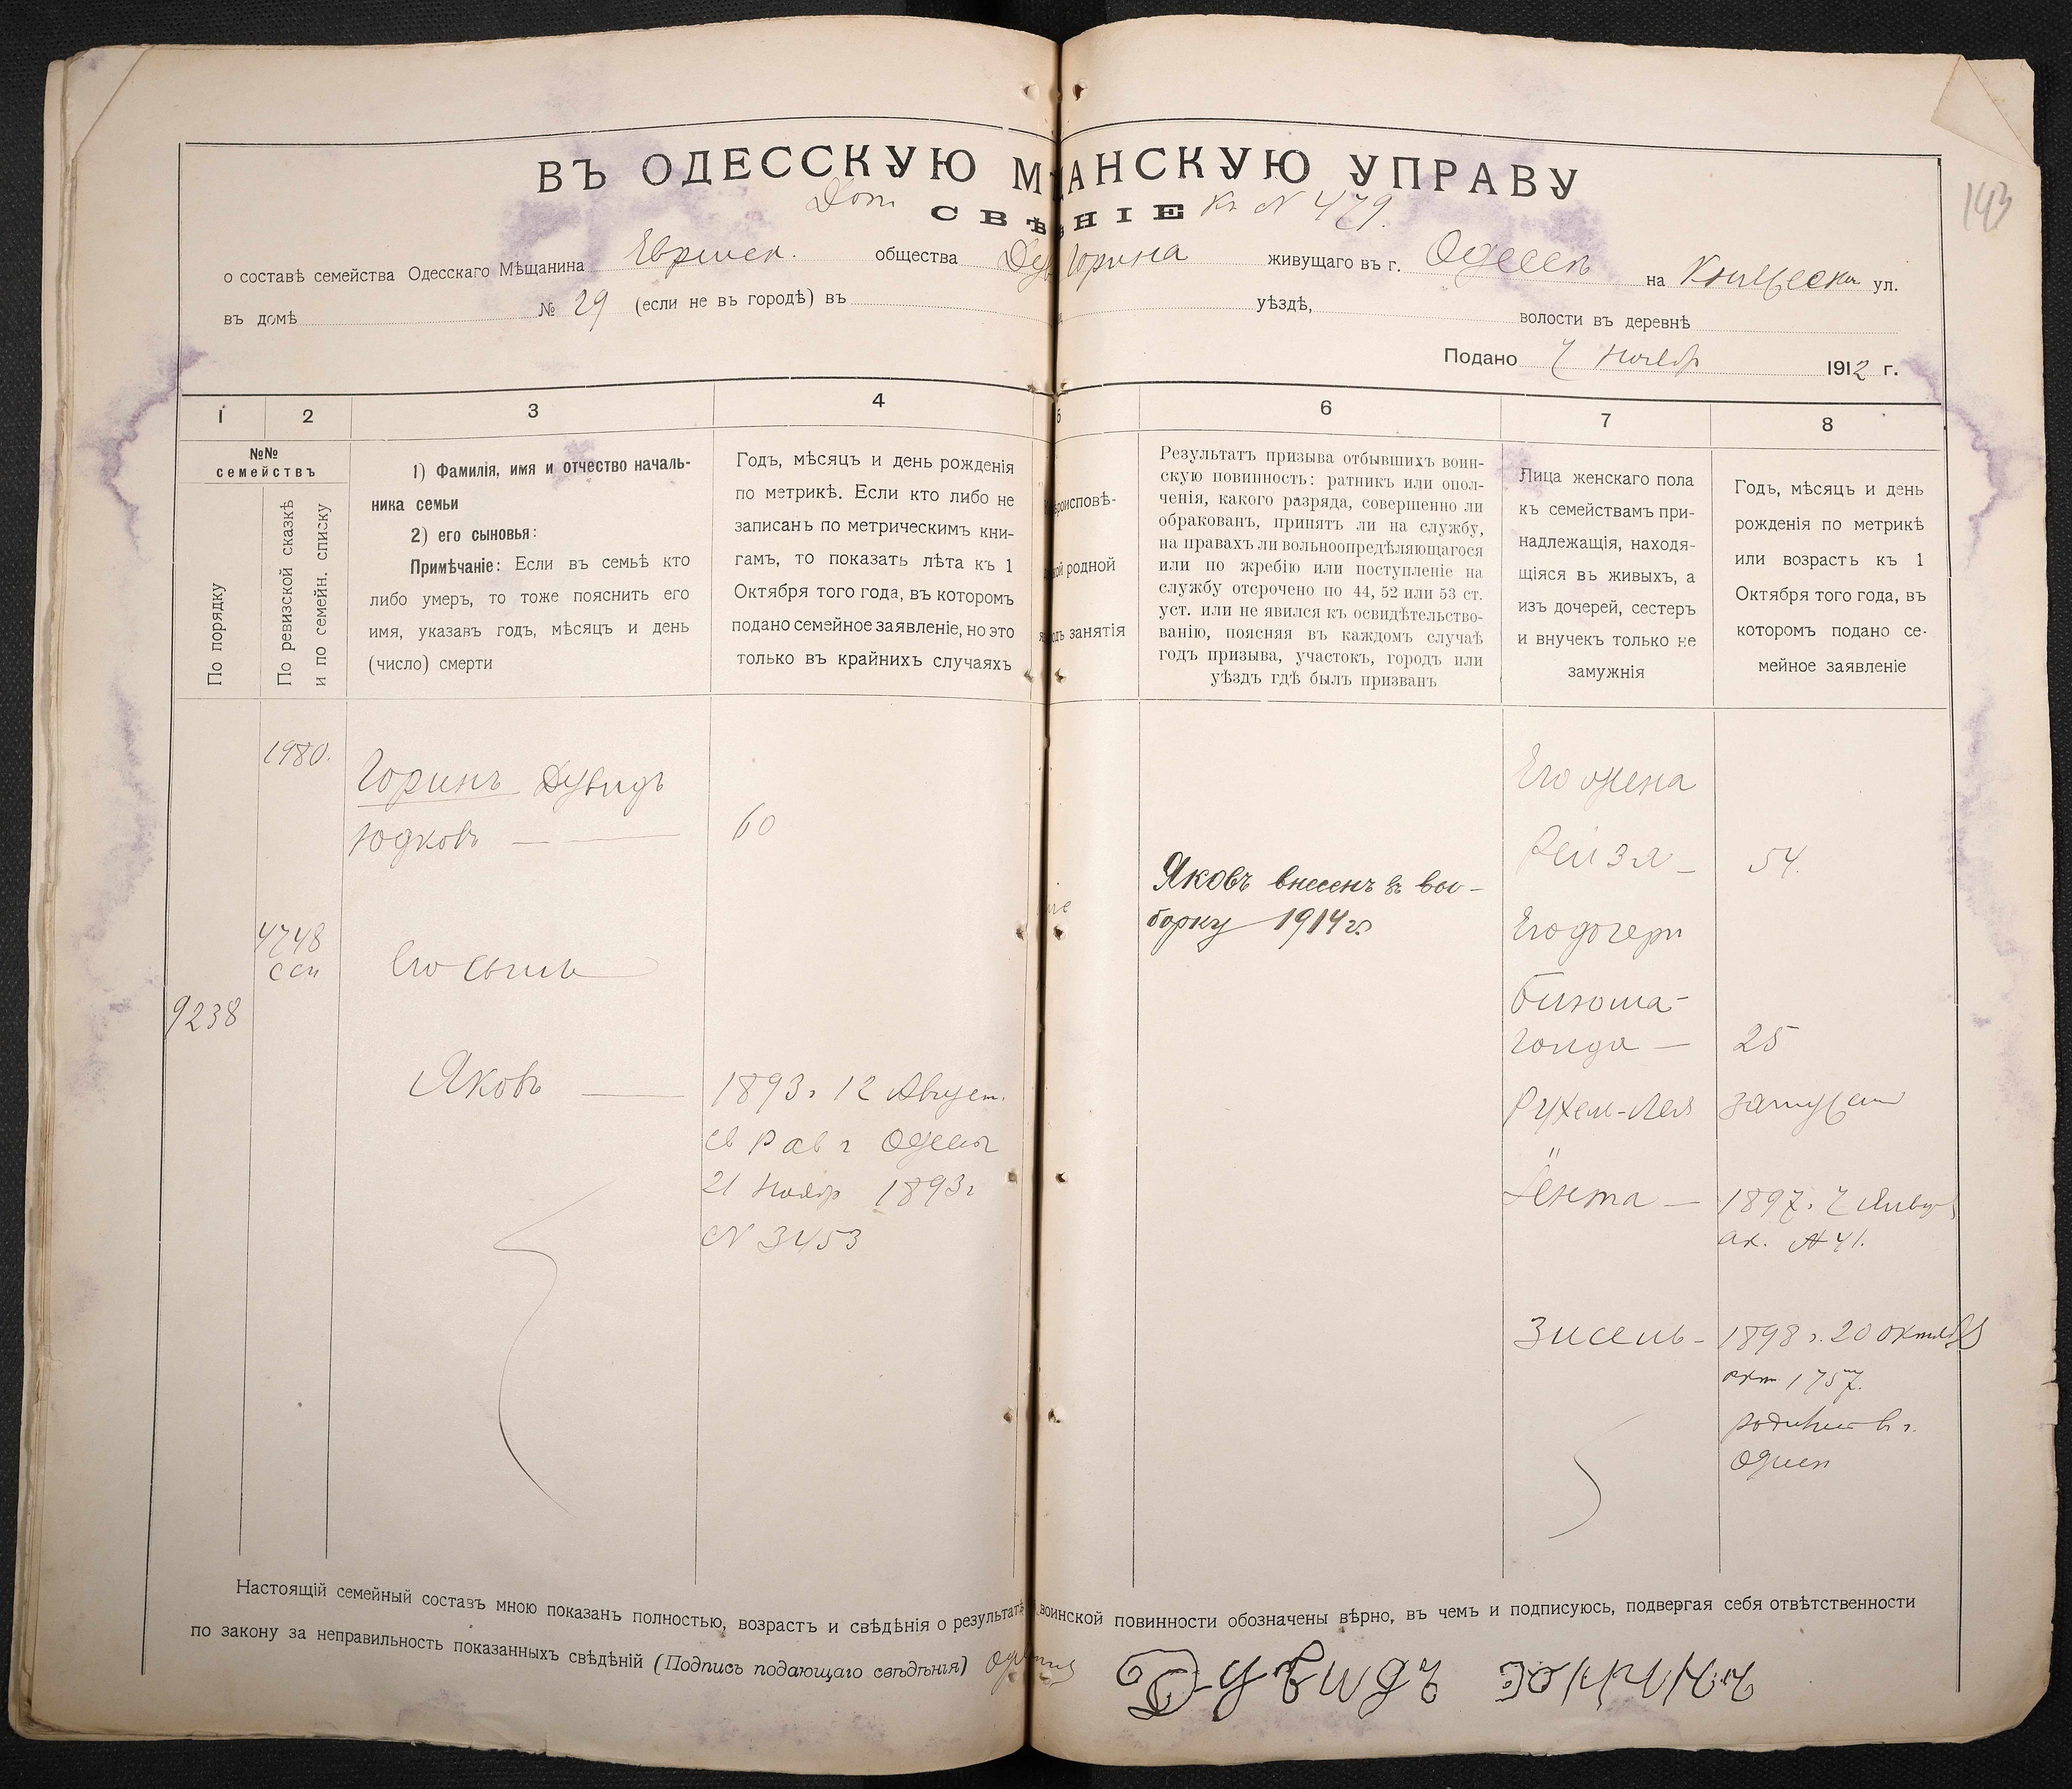 143
ВЪ ОДЕССКУЮ М АНСКУЮ УПРАВУ
Доп. СВѢ НІЕ Къ № 479.
о составѣ семейства Одесскаго Мѣщанина Еврейск. общества Дув Горина живущаго въ г. Одессѣ на ул.
въ домѣ № 29 (если не въ городѣ) въ уѣздѣ, волости въ деревнѣ
Подано 7 Ноябр 1912 г.
1 2 3 4 5 6 7 8
№№ семействъ
По порядку
По ревизской сказкѣ
и по семейн. списку
1) Фамилія, имя и отчество началь-
ника семьи
2) его сыновья:
Примѣчаніе: Если въ семьѣ кто
либо умеръ, то тоже пояснить его
имя, указавъ годъ, мѣсяцъ и день
(число) смерти
Годъ, мѣсяцъ и день рожденія
по метрикѣ. Если кто либо не
записанъ по метрическимъ кни-
гамъ, то показать лѣта къ 1
Октября того года, въ которомъ
подано семейное заявленіе, но это
только въ крайнихъ случаяхъ
роисповѣ-
ой родной
одъ занятія
Результатъ призыва отбывшихъ воин-
скую повинность: ратникъ или опол-
ченія, какого разряда, совершенно ли
обракованъ, принятъ ли на службу,
на правахъ ли вольноопредѣляющагося
или по жребію или поступленіе на
службу отсрочено по 44, 52 или 53 ст.
уст. или не явился къ освидѣтельство-
ванію, поясняя въ каждомъ случаѣ
годъ призыва, участокъ, городъ или
уѣздъ гдѣ былъ призванъ
Лица женскаго пола
къ семействамъ при-
надлежащія, находя-
щіяся въ живыхъ, а
изъ дочерей, сестеръ
и внучекъ только не
замужнія
Годъ, мѣсяцъ и день
рожденія по метрикѣ
или возрастъ къ 1
Октября того года, въ
которомъ подано се-
мейное заявленіе
1980.
Горинъ Дувидъ
Юдковъ — 60
4748
ссп
Его сынъ
9238
Яковъ — 1893 г 12 Август.
св Рав г Одессы
21 Ноябр 1893 г
№ 3453
Яковъ внесенъ въ вы-
борку 1914 г.
Его жена
Рейзя — 54.
Его дочери
Бизюма-
Голда — 25
Рухель-Лея замужем
Ёнта — 1897 г. 7 Январ
ак. № 41.
Зисель — 1898 г. 20 октября
акт 1757.
родились в г.
Одессе
Настоящій семейный составъ мною показанъ полностью, возрастъ и свѣдѣнія о результатѣ воинской повинности обозначены вѣрно, въ чемъ и подписуюсь, подвергая себя отвѣтственности
по закону за неправильность показанныхъ свѣдѣній (Подпись подающаго свѣдѣнія) Дувидъ Горинъ